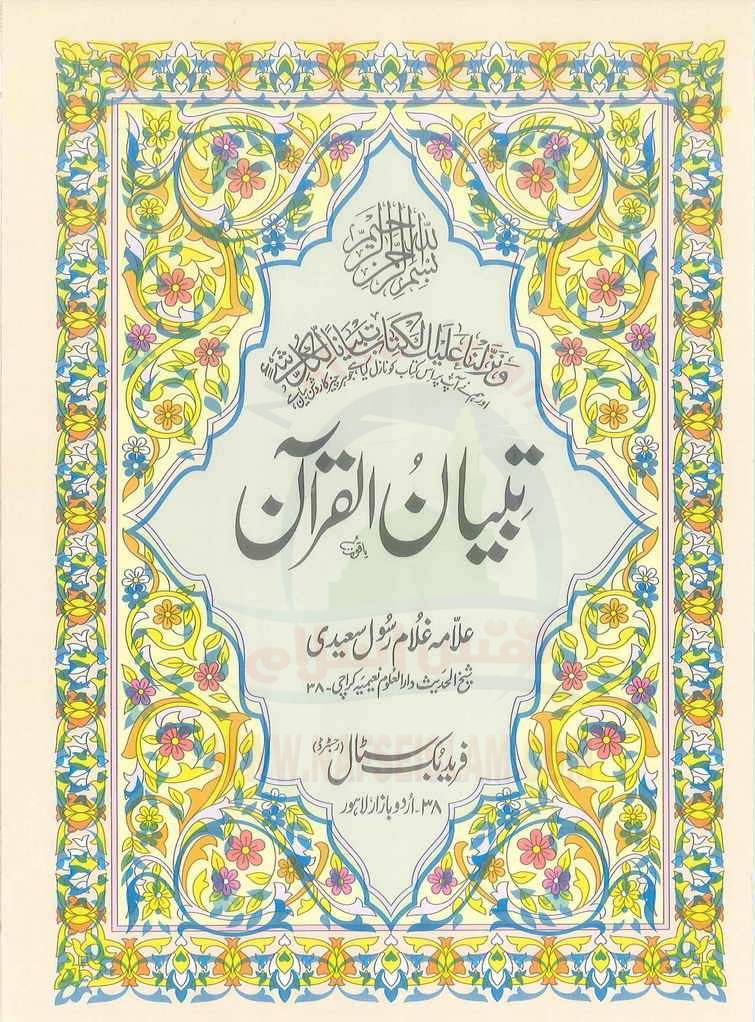 بسم الله الرحمن الرحیم
ونزلنا علیک الکتاب تبیانا لکل شیء
اور ہم نے آپ پر اس کتاب کو نازل کیا ہے جو ہر چیز کا روشن بیان ہے
تبیانُ القرآن
علّامہ غلام رسُول سعیدی
شیخ الحدیث دارالعلوم نعیمیہ کراچی۔۳۸
فرید بُک سٹال (رجسٹرڈ)
۳۸۔اُردو بازار لاہور
نفس اسلام
WWW.NAFSEISLAM.COM